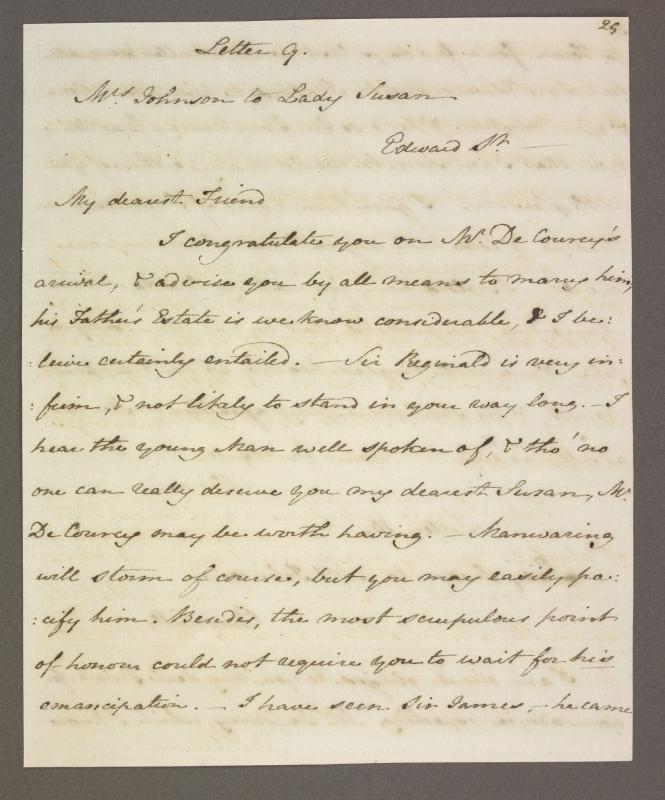 29
Letter 9.
Mrs Johnson to Lady Susan
Edward St. —
My dearest Friend
I congratulate you on Mr. De Courcy's
arrival, & advise you by all means to marry him;
his Father's Estate is we know considerable, & I be:
:leive certainly entailed. — Sir Reginald is very in:
:firm, & not likely to stand in your way long. — I
hear the young Man well spoken of, & tho' no
one can really deserve you my dearest Susan, Mr.
De Courcy may be worth having. — Manwaring
will storm of course, but you may easily pa:
:cify him. Besides, the most scrupulous point
of honour could not require you to wait for his
emancipation. — I have seen Sir James, — he came